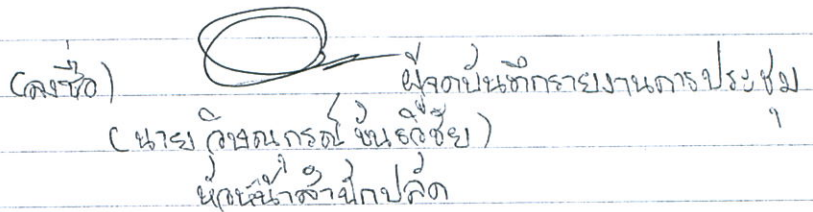 (ลงชื่อ) ผู้จดบันทึกรายงานการประชุม
(นาย วิษณุกรณ์ ขันธวิชัย)
หัวหน้าสำนักปลัด